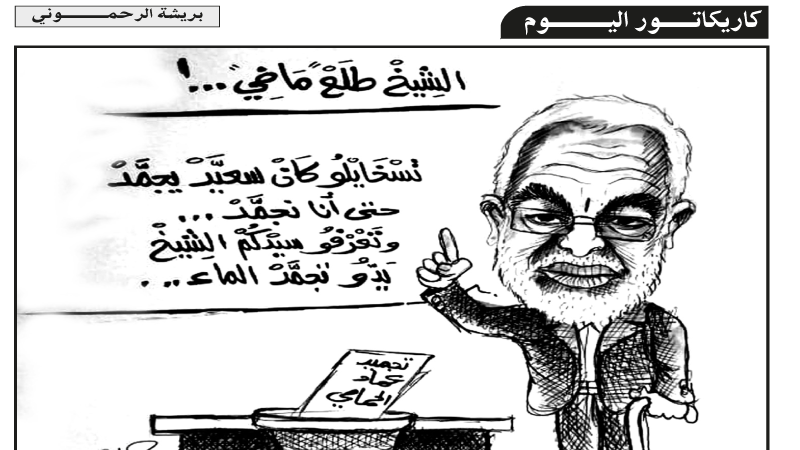 كاريكاتـــور اليـــــوم
بريشة الرحمـــــوني
الشِيخْ طلَعْ "مَاضِي"...!
تسْخَايْلُو كَانْ سعيَّدْ يجمَّدْ
حتى أنا نجمَّدْ...
وتَعْرْفُو سيْدكُمْ الشِيخْ
يَدُّو تجمَّدْ الماء...
تجميد
عماد
الحمامي